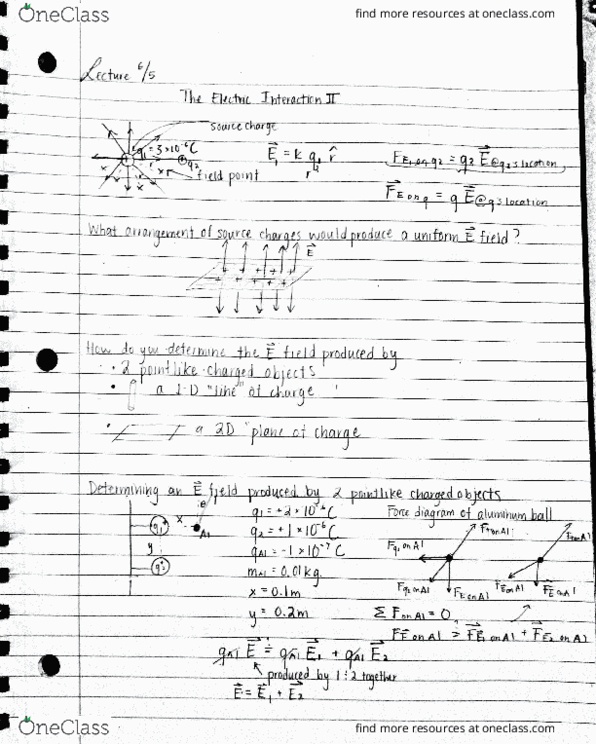 OneClass
find more resources at oneclass.com
Lecture 6/5
The Electric Interaction II
source charge
q₁ = 3×10⁻⁶C
q₂
r
field point
E⃗₁ = k q₁ r̂
r²
F E₁ on q₂ = q₂ E⃗ @ q₂'s location
F⃗ E on q = q E⃗ @ q's location
What arrangement of source charges would produce a uniform E⃗ field?
E⃗
+ + + + +
How do you determine the E⃗ field produced by
• 2 pointlike charged objects
• a 1-D "line" of charge
• a 2D "plane of charge
Determining an E⃗ field produced by 2 pointlike charged objects
q₁⁺
x
Al
y
q₂⁺
q₁ = +2×10⁻⁶C
q₂ = +1×10⁻⁶C
qAl = -1×10⁻⁷C
mAl = 0.01kg
x = 0.1m
y = 0.2m
Force diagram of aluminum ball
Fq₁ on Al
Fq₂ on Al
FE on Al
FE on Al
FE on Al
ΣF on Al = 0
F⃗E on Al = F⃗E₁ on Al + F⃗E₂ on Al
qAl E⃗ = qAl E⃗₁ + qAl E⃗₂
produced by 1:2 together
E⃗ = E⃗₁ + E⃗₂
OneClass
find more resources at oneclass.com